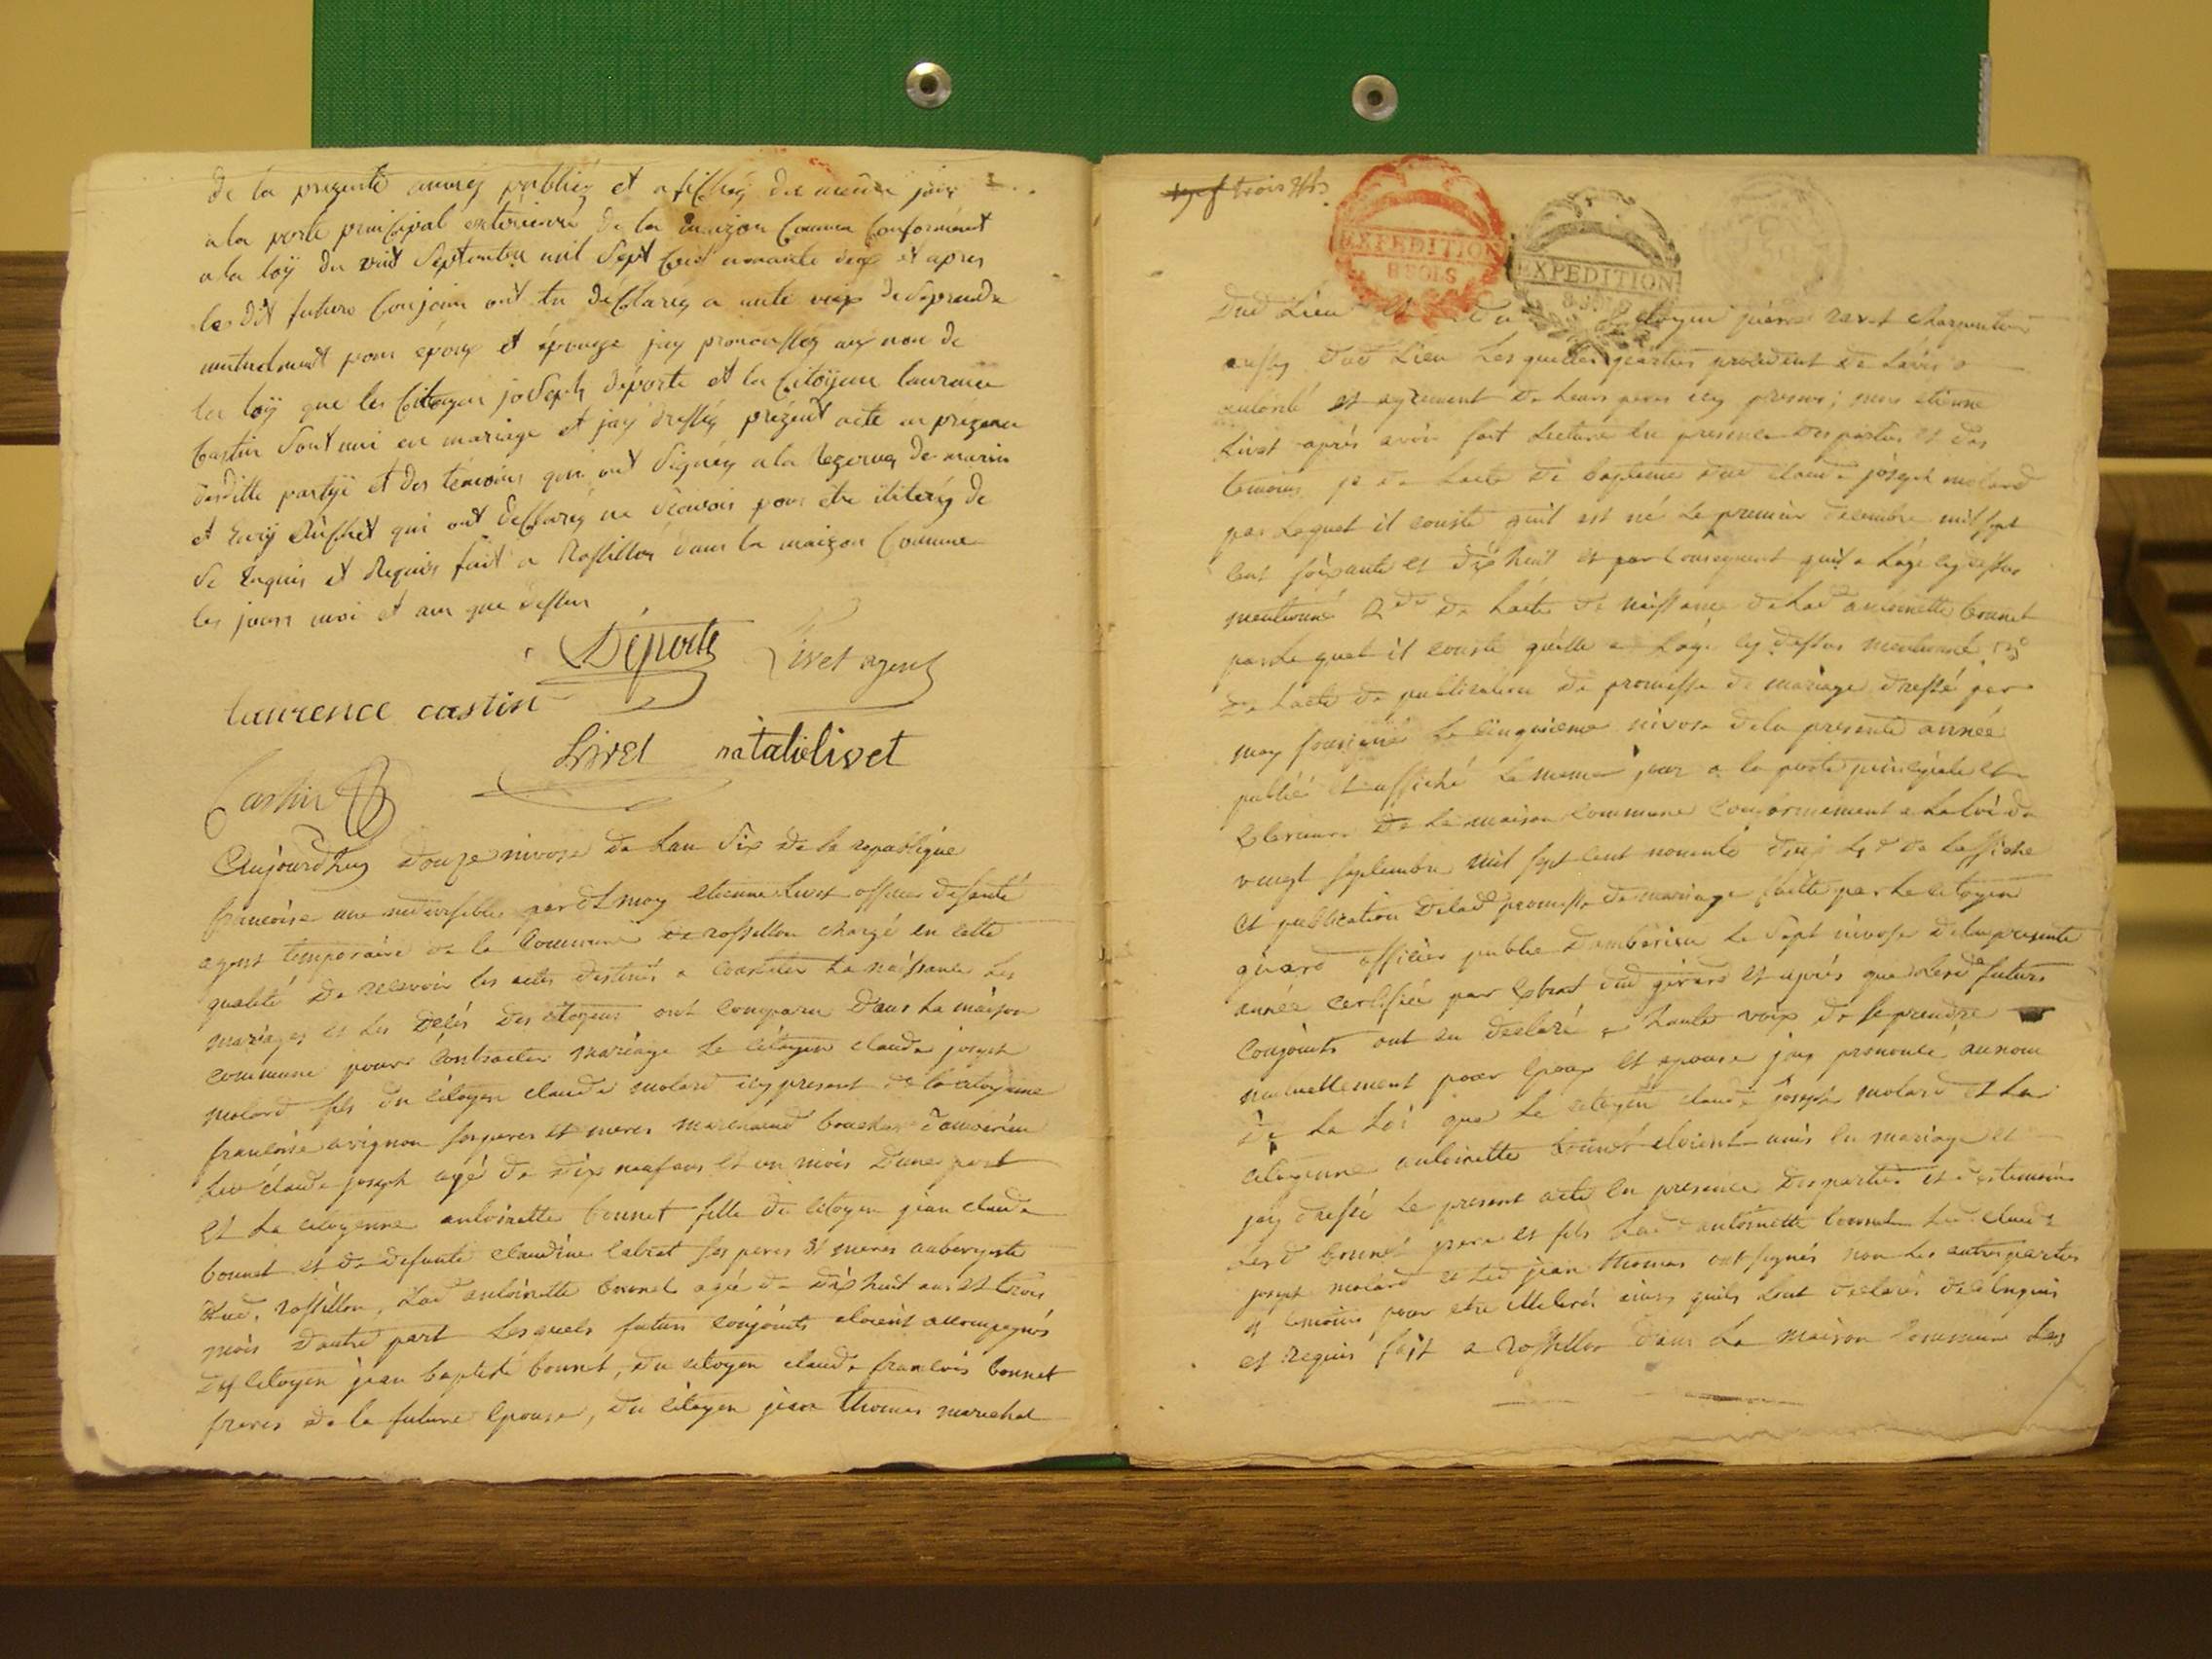 de la prezente anneÿ publieÿ et afficheÿ du meme jour
a la porte principal exterieure de la maizon Commun Conforment
a la loÿ du vint Septembre mil Sept Cent nonante deux et apres
les dit future Conjoins ont eu déClareÿ a aute voix de Seprendre
mutuelment pour époux et épouze jay pronousseÿ aux non de
la loÿ que les Citoyen joSeph déporte et la Citoÿenne laurence
Castin Sont uni en mariage et jaÿ dresseÿ prézent acte en prézence
desditte partÿe et des temoins qui ont Signéÿ a la Rezerve de marin
et qui ont deClareÿ ne Scavoir pour etre
de Enquis et Requis fait a Rossillon dans la maizon Commune
les jours moi et an que dessus
Déporte Livet agent
laurence castin
Livet natalie livet
Castin
Aujourdhuy douze nivose de Lan Six de la republique
francoise une indivisible par dt moy etienne Livet officier desanté
agent temporaire de la Commune de rossillon chargé en cette
qualité de recevoir les actes destinés a constater La naissance Les
mariages et Les Décés Des citoyens ont comparu Dans La maison
commune pour Contracter mariage Le citoyen claude joseph
molard fils du citoyen claude molard icy present de la citoyenne
francoise avignon ses peres et meres marchand boucher d'amberieu
Led claude joseph agé de dix neuf ans et un mois D'une part
et La citoyenne antoinette bonnet fille du citoyen jean claude
bonnet et de defunte claudine Labrat ses peres et meres aubergiste
dud. rossillon, Lad antoinette bonnet agée de dix huit ans et trois
mois d'autre part Lesquels futurs conjoints etoient accompagnés
des citoyen jean baptiste bonnet, du citoyen claude francois bonnet
freres de la future Epouse, du citoyen jean thomas marechal
trois
EXPEDITION
8 SOLS
EXPEDITION
8 SOLS
Dud Lieu et du citoyen pierre ravet charpentier
aussy dud Lieu Lesquelles parties procedent de Lavis
autorité et agrement de Leurs peres icy presens; nous etienne
Livet aprés avoir fait Lecture en presence des parties et des
temoins 1º de Lacte de bapteme dud claude joseph molard
par Lequel il conste quil est né Le premier decembre mil sept
cent soixante et dix huit et par Consequent quil a Lage cydessus
mentionné 2do de Lacte de naissance de Lade antoinette bonnet
par Le quel il conste quelle a Lage cy dessus mentionné 3º
De Lacte de publication de promesse de mariage dressé par
moy soussigné Le cinquieme nivose de la presente année
publié et affiché Le meme jour a la porte principale et
exterieure de La maison commune conformement a La loi du
vingt septembre mil sept cent nonante deux 4º de Laffiche
et publication de lad promesse de mariage faitte par Le citoyen
girard officier public dambérieu Le Sept nivose de la presente
année certifiée par Extrait dud girard et aprés que Lesd futurs
conjoints ont eu declaré a haute voix de se prendre
mutuellement pour epoux et epouse jay prononcé au nom
de La Loi que Le citoyen claude joseph molard et La
citoyenne antoinette bonnet etoient unis en mariage et
jay dressé Le present acte en presence Des parties et des temoins
Lesd bonnet pere et fils Lad antoinette bonnet Led claude
joseph molard et Led jean thomas ont signés non Les autres parties
et temoins pour etre illiterés ainsy quils Lont declarés de ce Enquis
et requis fait a rossillon dans La maison Commune Les